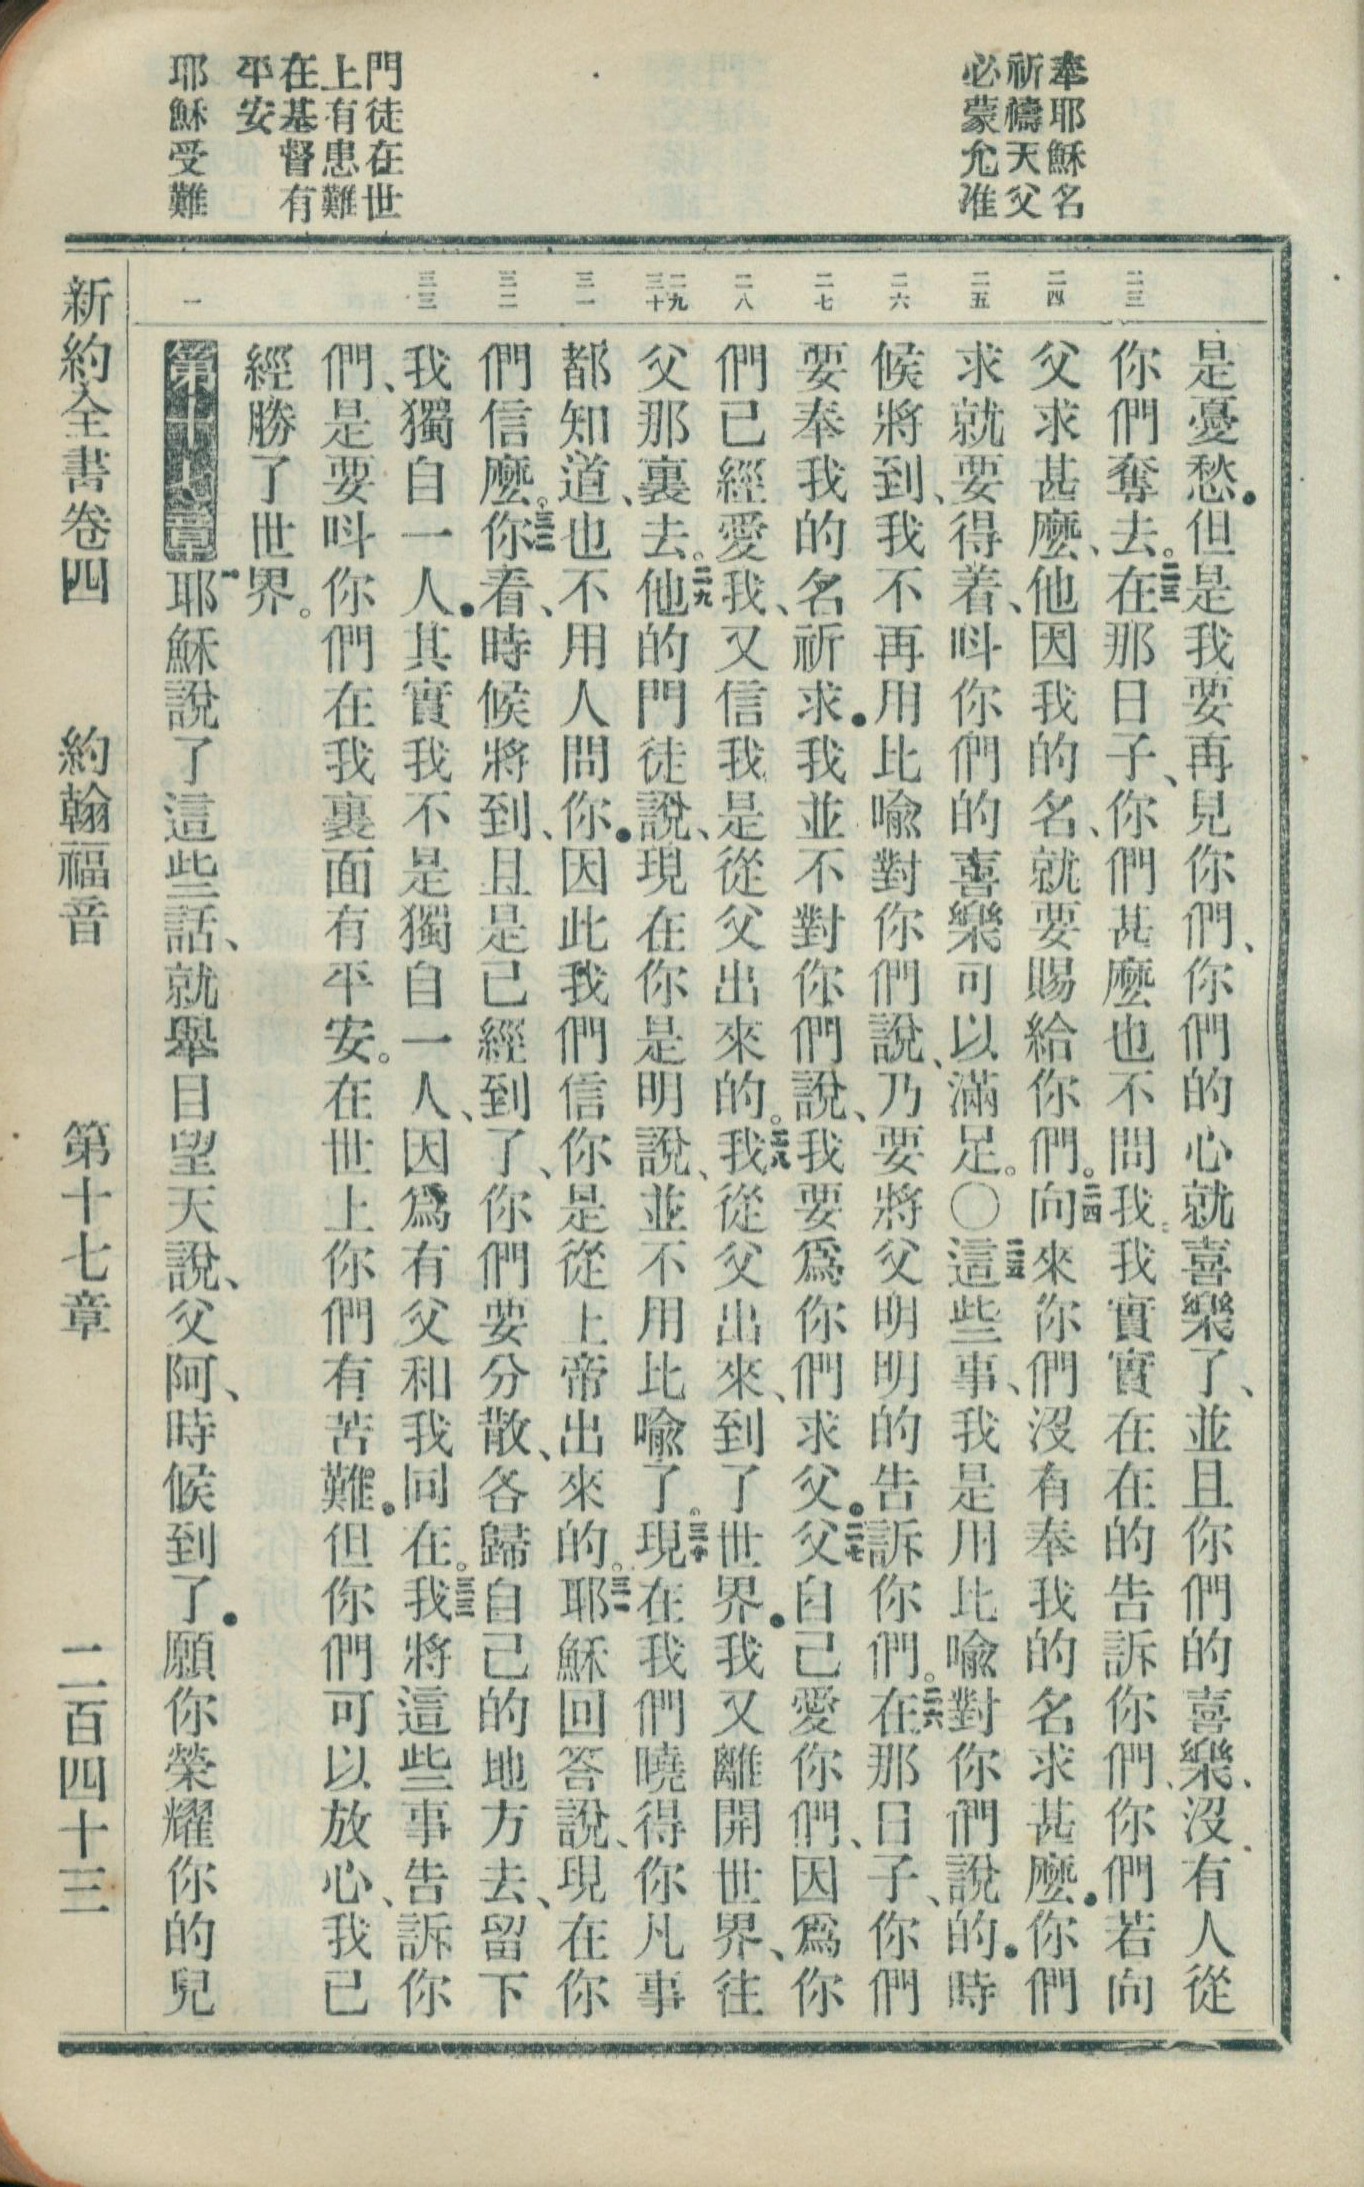 奉耶穌名
祈禱天父
必蒙允准
門徒在世
上有患難
在基督有
平安
耶穌受難
二三
二四
二五
二六
二七
二八
二九
三十
三一
三二
三三
一
是憂愁．但是我要再見你們、你們的心就喜樂了、並且你們的喜樂、沒有人從
你們奪去。二三在那日子、你們甚麼也不問我。我實實在在的告訴你們、你們若向
父求甚麼、他因我的名、就要賜給你們。二四向來你們沒有奉我的名求甚麼．你們
求就要得着、呌你們的喜樂可以滿足。〇二五這些事、我是用比喩對你們說的．時
候將到、我不再用比喩對你們說、乃要將父明明的告訴你們。二六在那日子、你們
要奉我的名祈求．我並不對你們說、我要爲你們求父．二七父自己愛你們、因爲你
們已經愛我、又信我是從父出來的。二八我從父出來、到了世界．我又離開世界、往
父那裏去。二九他的門徒說、現在你是明說、並不用比喩了。三十現在我們曉得你凡事
都知道、也不用人問你．因此我們信你是從上帝出來的。三一耶穌回答說、現在你
們信麼。三二你看、時候將到、且是已經到了、你們要分散、各歸自己的地方去、留下
我獨自一人．其實我不是獨自一人、因爲有父和我同在。三三我將這些事告訴你
們、是要呌你們在我裏面有平安。在世上你們有苦難．但你們可以放心、我已
經勝了世界。
第十七章一耶穌說了這些話、就舉目望天說、父阿、時候到了．願你榮耀你的兒
新約全書卷四 約翰福音 第十七章 二百四十三